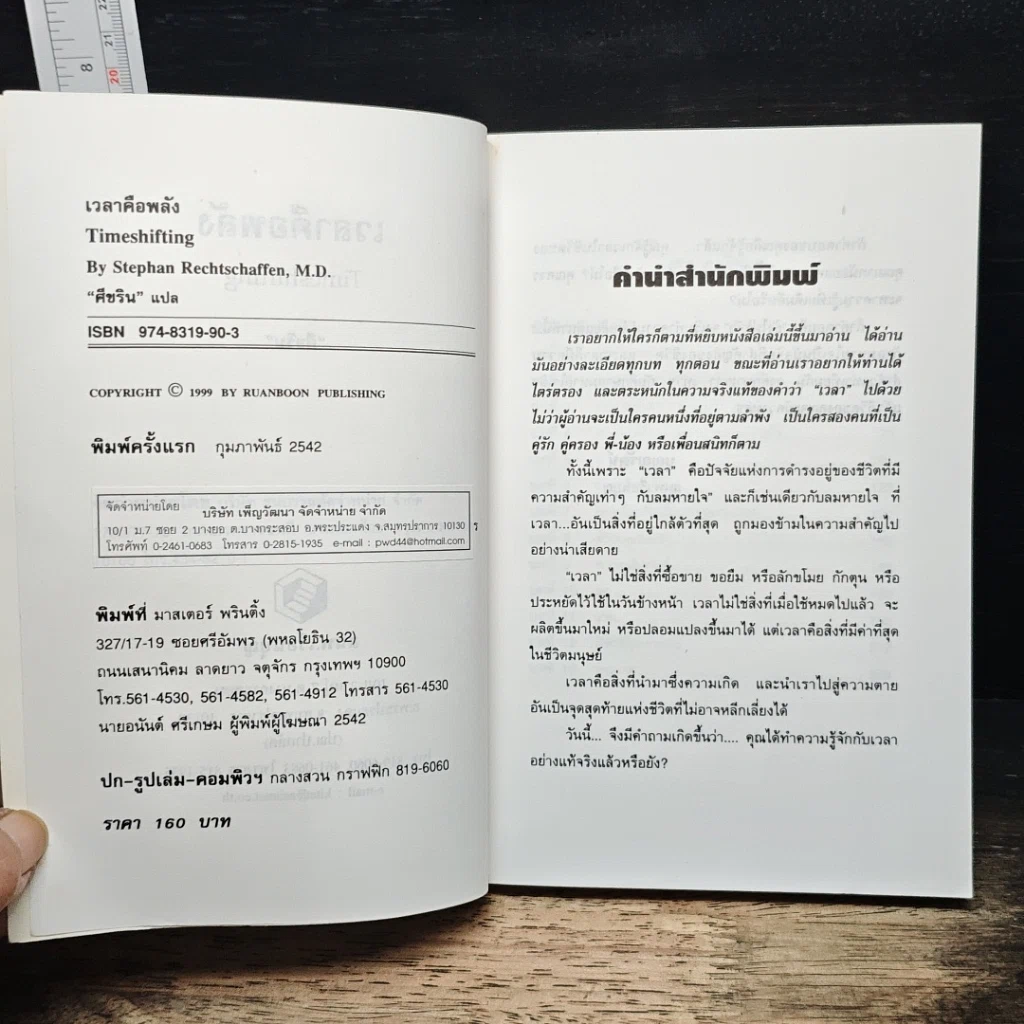 8
20
21
22
เวลาคือพลัง
Timeshifting
By Stephan Rechtschaffen, M.D.
“ศีขริน” แปล
ISBN 974-8319-90-3
COPYRIGHT © 1999 BY RUANBOON PUBLISHING
พิมพ์ครั้งแรก กุมภาพันธ์ 2542
จัดจำหน่ายโดย
บริษัท เพ็ญวัฒนา จัดจำหน่าย จำกัด
10/1 ม.7 ซอย 2 บางยอ ต.บางกระสอบ อ.พระประแดง จ.สมุทรปราการ 10130
โทรศัพท์ 0-2461-0683 โทรสาร 0-2815-1935 e-mail : pwd44@hotmail.com
พิมพ์ที่ มาสเตอร์ พรินติ้ง
327/17-19 ซอยศรีอัมพร (พหลโยธิน 32)
ถนนเสนานิคม ลาดยาว จตุจักร กรุงเทพฯ 10900
โทร.561-4530, 561-4582, 561-4912 โทรสาร 561-4530
นายอนันต์ ศรีเกษม ผู้พิมพ์ผู้โฆษณา 2542
ปก-รูปเล่ม-คอมพิวฯ กลางสวน กราฟฟิก 819-6060
ราคา 160 บาท
คำนำสำนักพิมพ์
เราอยากให้ใครก็ตามที่หยิบหนังสือเล่มนี้ขึ้นมาอ่าน ได้อ่าน
มันอย่างละเอียดทุกบท ทุกตอน ขณะที่อ่านเราอยากให้ท่านได้
ไตร่ตรอง และตระหนักในความจริงแท้ของคำว่า “เวลา” ไปด้วย
ไม่ว่าผู้อ่านจะเป็นใครคนหนึ่งที่อยู่ตามลำพัง เป็นใครสองคนที่เป็น
คู่รัก คู่ครอง พี่-น้อง หรือเพื่อนสนิทก็ตาม
ทั้งนี้เพราะ “เวลา” คือปัจจัยแห่งการดำรงอยู่ของชีวิตที่มี
ความสำคัญเท่าๆ กับลมหายใจ” และก็เช่นเดียวกับลมหายใจ ที่
เวลา...อันเป็นสิ่งที่อยู่ใกล้ตัวที่สุด ถูกมองข้ามในความสำคัญไป
อย่างน่าเสียดาย
“เวลา” ไม่ใช่สิ่งที่ซื้อขาย ขอยืม หรือลักขโมย กักตุน หรือ
ประหยัดไว้ใช้ในวันข้างหน้า เวลาไม่ใช่สิ่งที่เมื่อใช้หมดไปแล้ว จะ
ผลิตขึ้นมาใหม่ หรือปลอมแปลงขึ้นมาได้ แต่เวลาคือสิ่งที่มีค่าที่สุด
ในชีวิตมนุษย์
เวลาคือสิ่งที่นำมาซึ่งความเกิด และนำเราไปสู่ความตาย
อันเป็นจุดสุดท้ายแห่งชีวิตที่ไม่อาจหลีกเลี่ยงได้
วันนี้... จึงมีคำถามเกิดขึ้นว่า.... คุณได้ทำความรู้จักกับเวลา
อย่างแท้จริงแล้วหรือยัง?